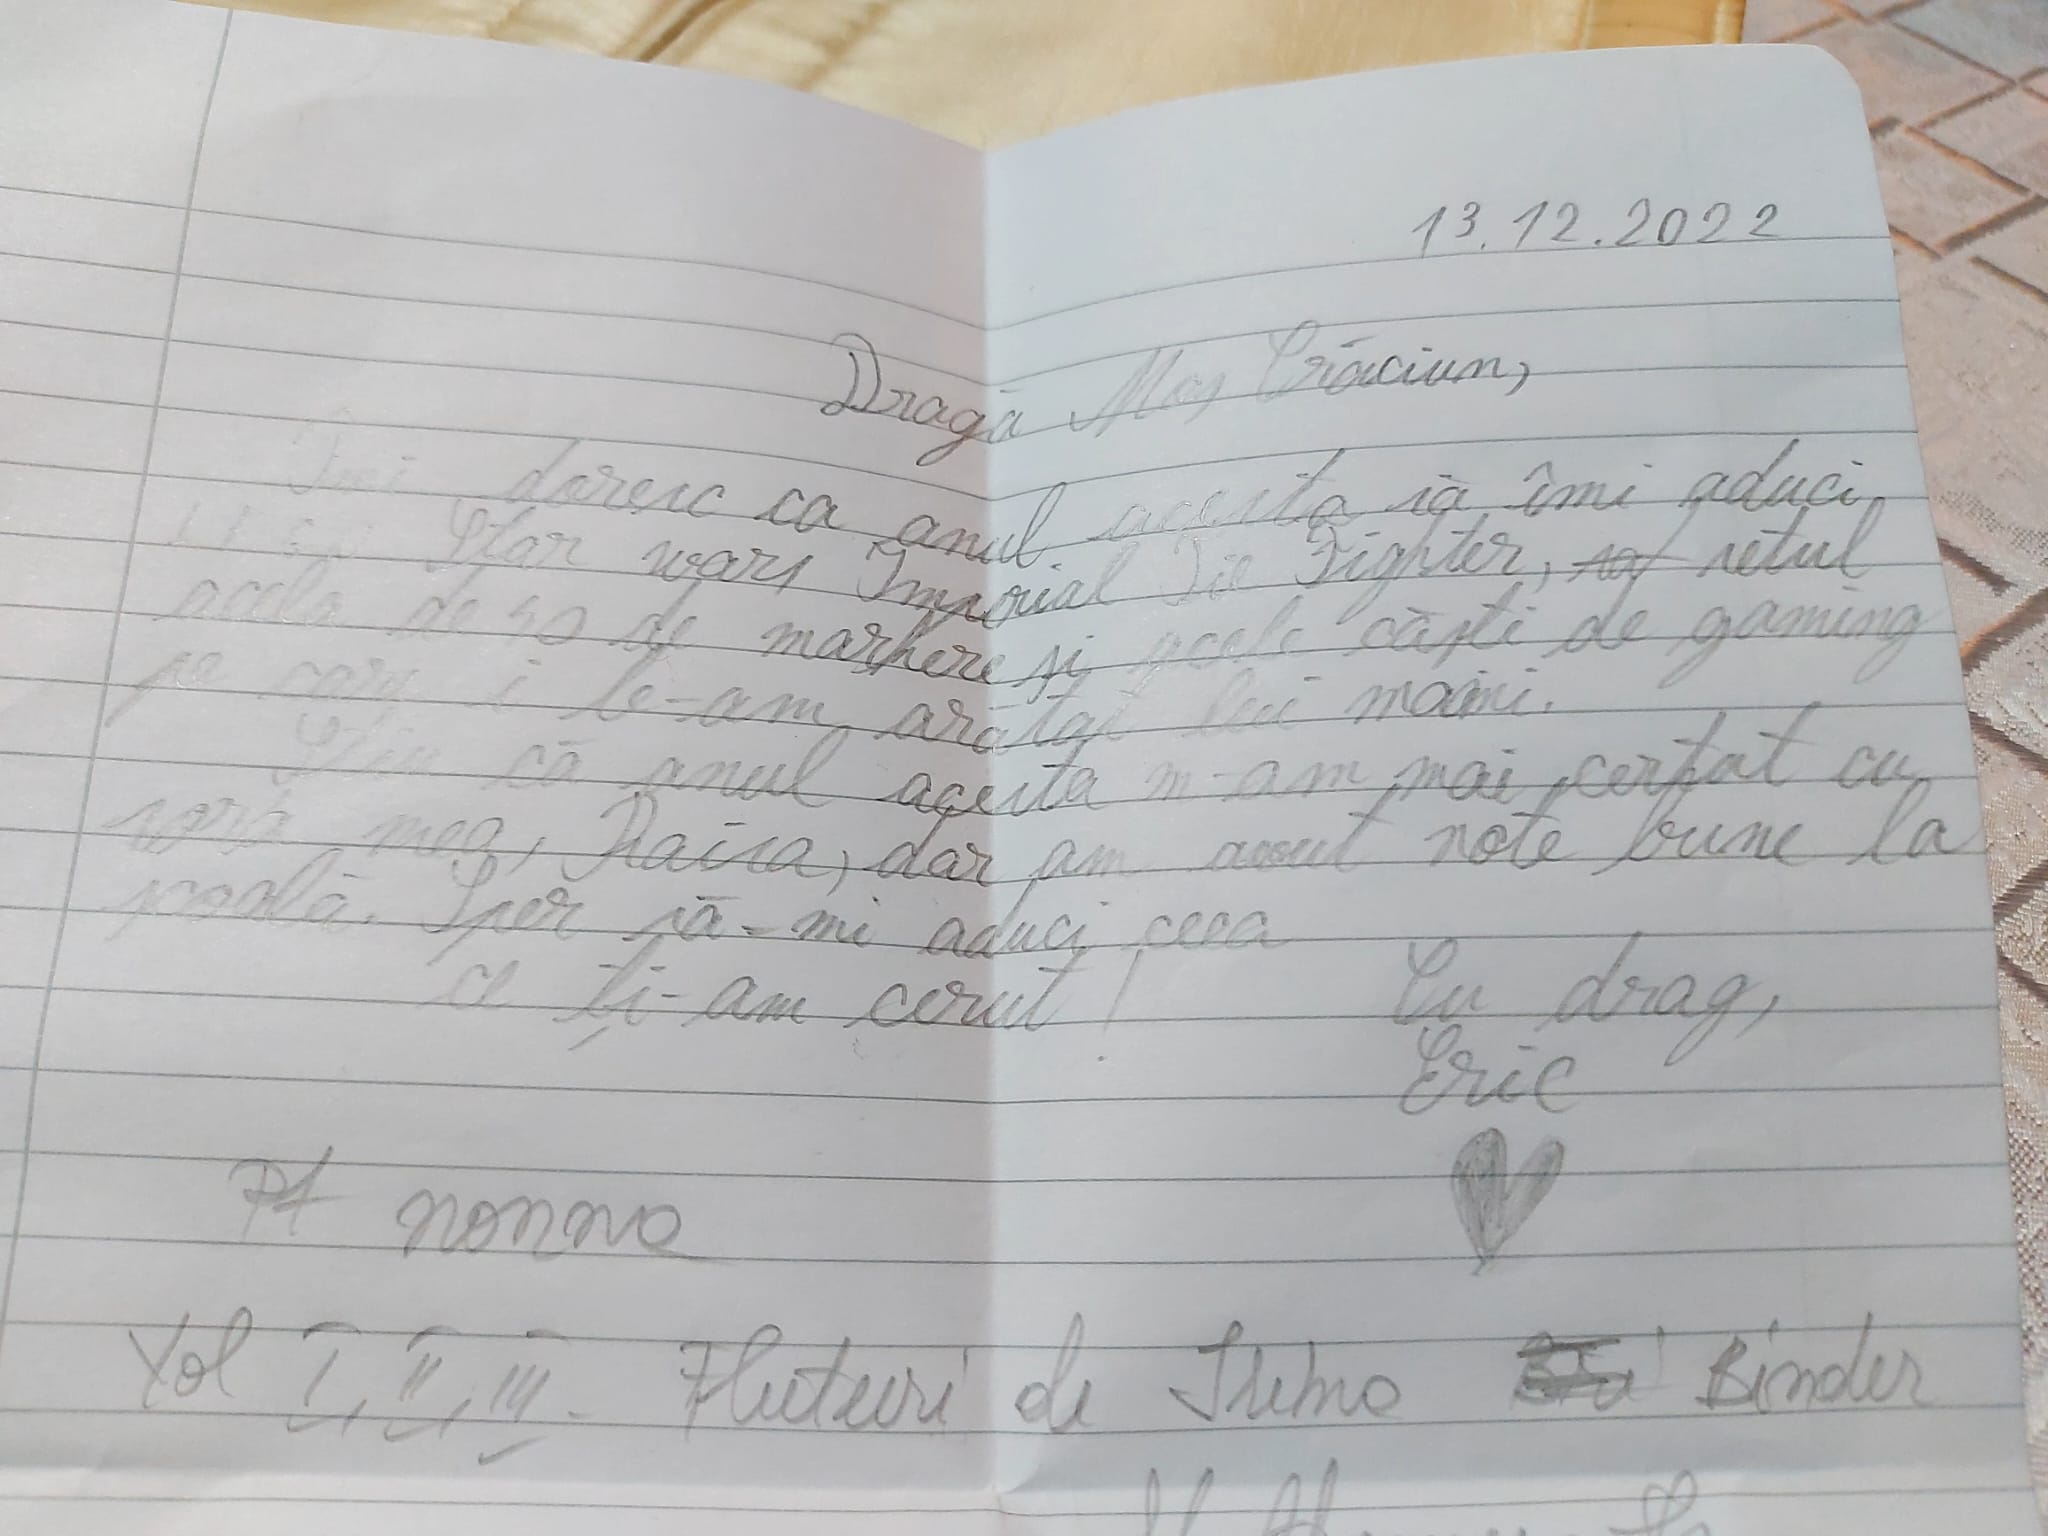 13.12.2022
Dragă Moș Crăciun,
Îmi doresc ca anul acesta să îmi aduci
Star wars Imperial Tie Fighter, setul
acela de 50 de markere și acele căști de gaming
pe care i le-am arătat lui mami.
Știu că anul acesta m-am mai certat cu
sora mea, Raisa, dar am avut note bune la
școală. Sper să-mi aduci ceea
ce ți-am cerut!
Cu drag,
Eric
Pt nonna
Vol I, II, III - Fluturi de Irina Binder